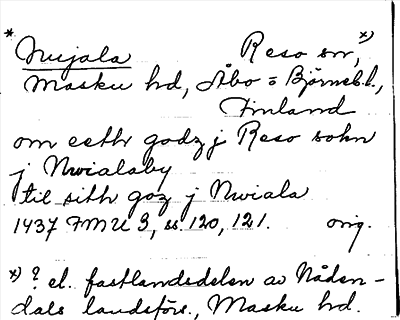 * Nujala Reso sn, *)
Masku hd, Åbo o Björneb. l.,
Finland
om eeth godz j Reso sokn
j Nwialaby
til sith goz j Nwiala
1437 FMU 3, ss. 120, 121. orig.
*) ? el. fastlandsdelen av Nåden-
dals landsförs., Masku hd.